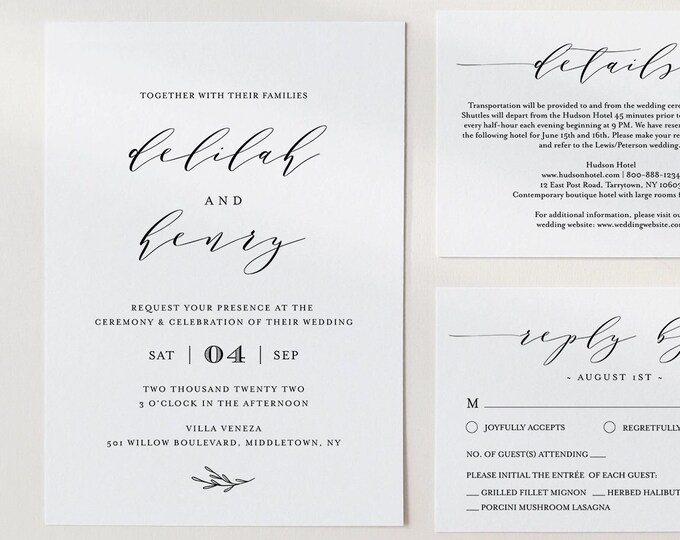 TOGETHER WITH THEIR FAMILIES
delilah
AND
henry
REQUEST YOUR PRESENCE AT THE
CEREMONY & CELEBRATION OF THEIR WEDDING
SAT | 04 | SEP
TWO THOUSAND TWENTY TWO
3 O'CLOCK IN THE AFTERNOON
VILLA VENEZA
501 WILLOW BOULEVARD, MIDDLETOWN, NY
details
Transportation will be provided to and from the wedding cere
Shuttles will depart from the Hudson Hotel 45 minutes prior to
every half-hour each evening beginning at 9 PM. We have reser
the following hotel for June 15th and 16th. Please make your re
and refer to the Lewis/Peterson wedding.
Hudson Hotel
www.hudsonhotel.com | 800-888-1234
12 East Post Road, Tarrytown, NY 10603
Contemporary boutique hotel with large rooms f
For additional information, please visit ou
wedding website: www.weddingwebsite.com
reply by
- AUGUST 1ST -
M
JOYFULLY ACCEPTS REGRETFULLY
NO. OF GUEST(S) ATTENDING
PLEASE INITIAL THE ENTRÉE OF EACH GUEST:
GRILLED FILLET MIGNON HERBED HALIBUT
PORCINI MUSHROOM LASAGNA